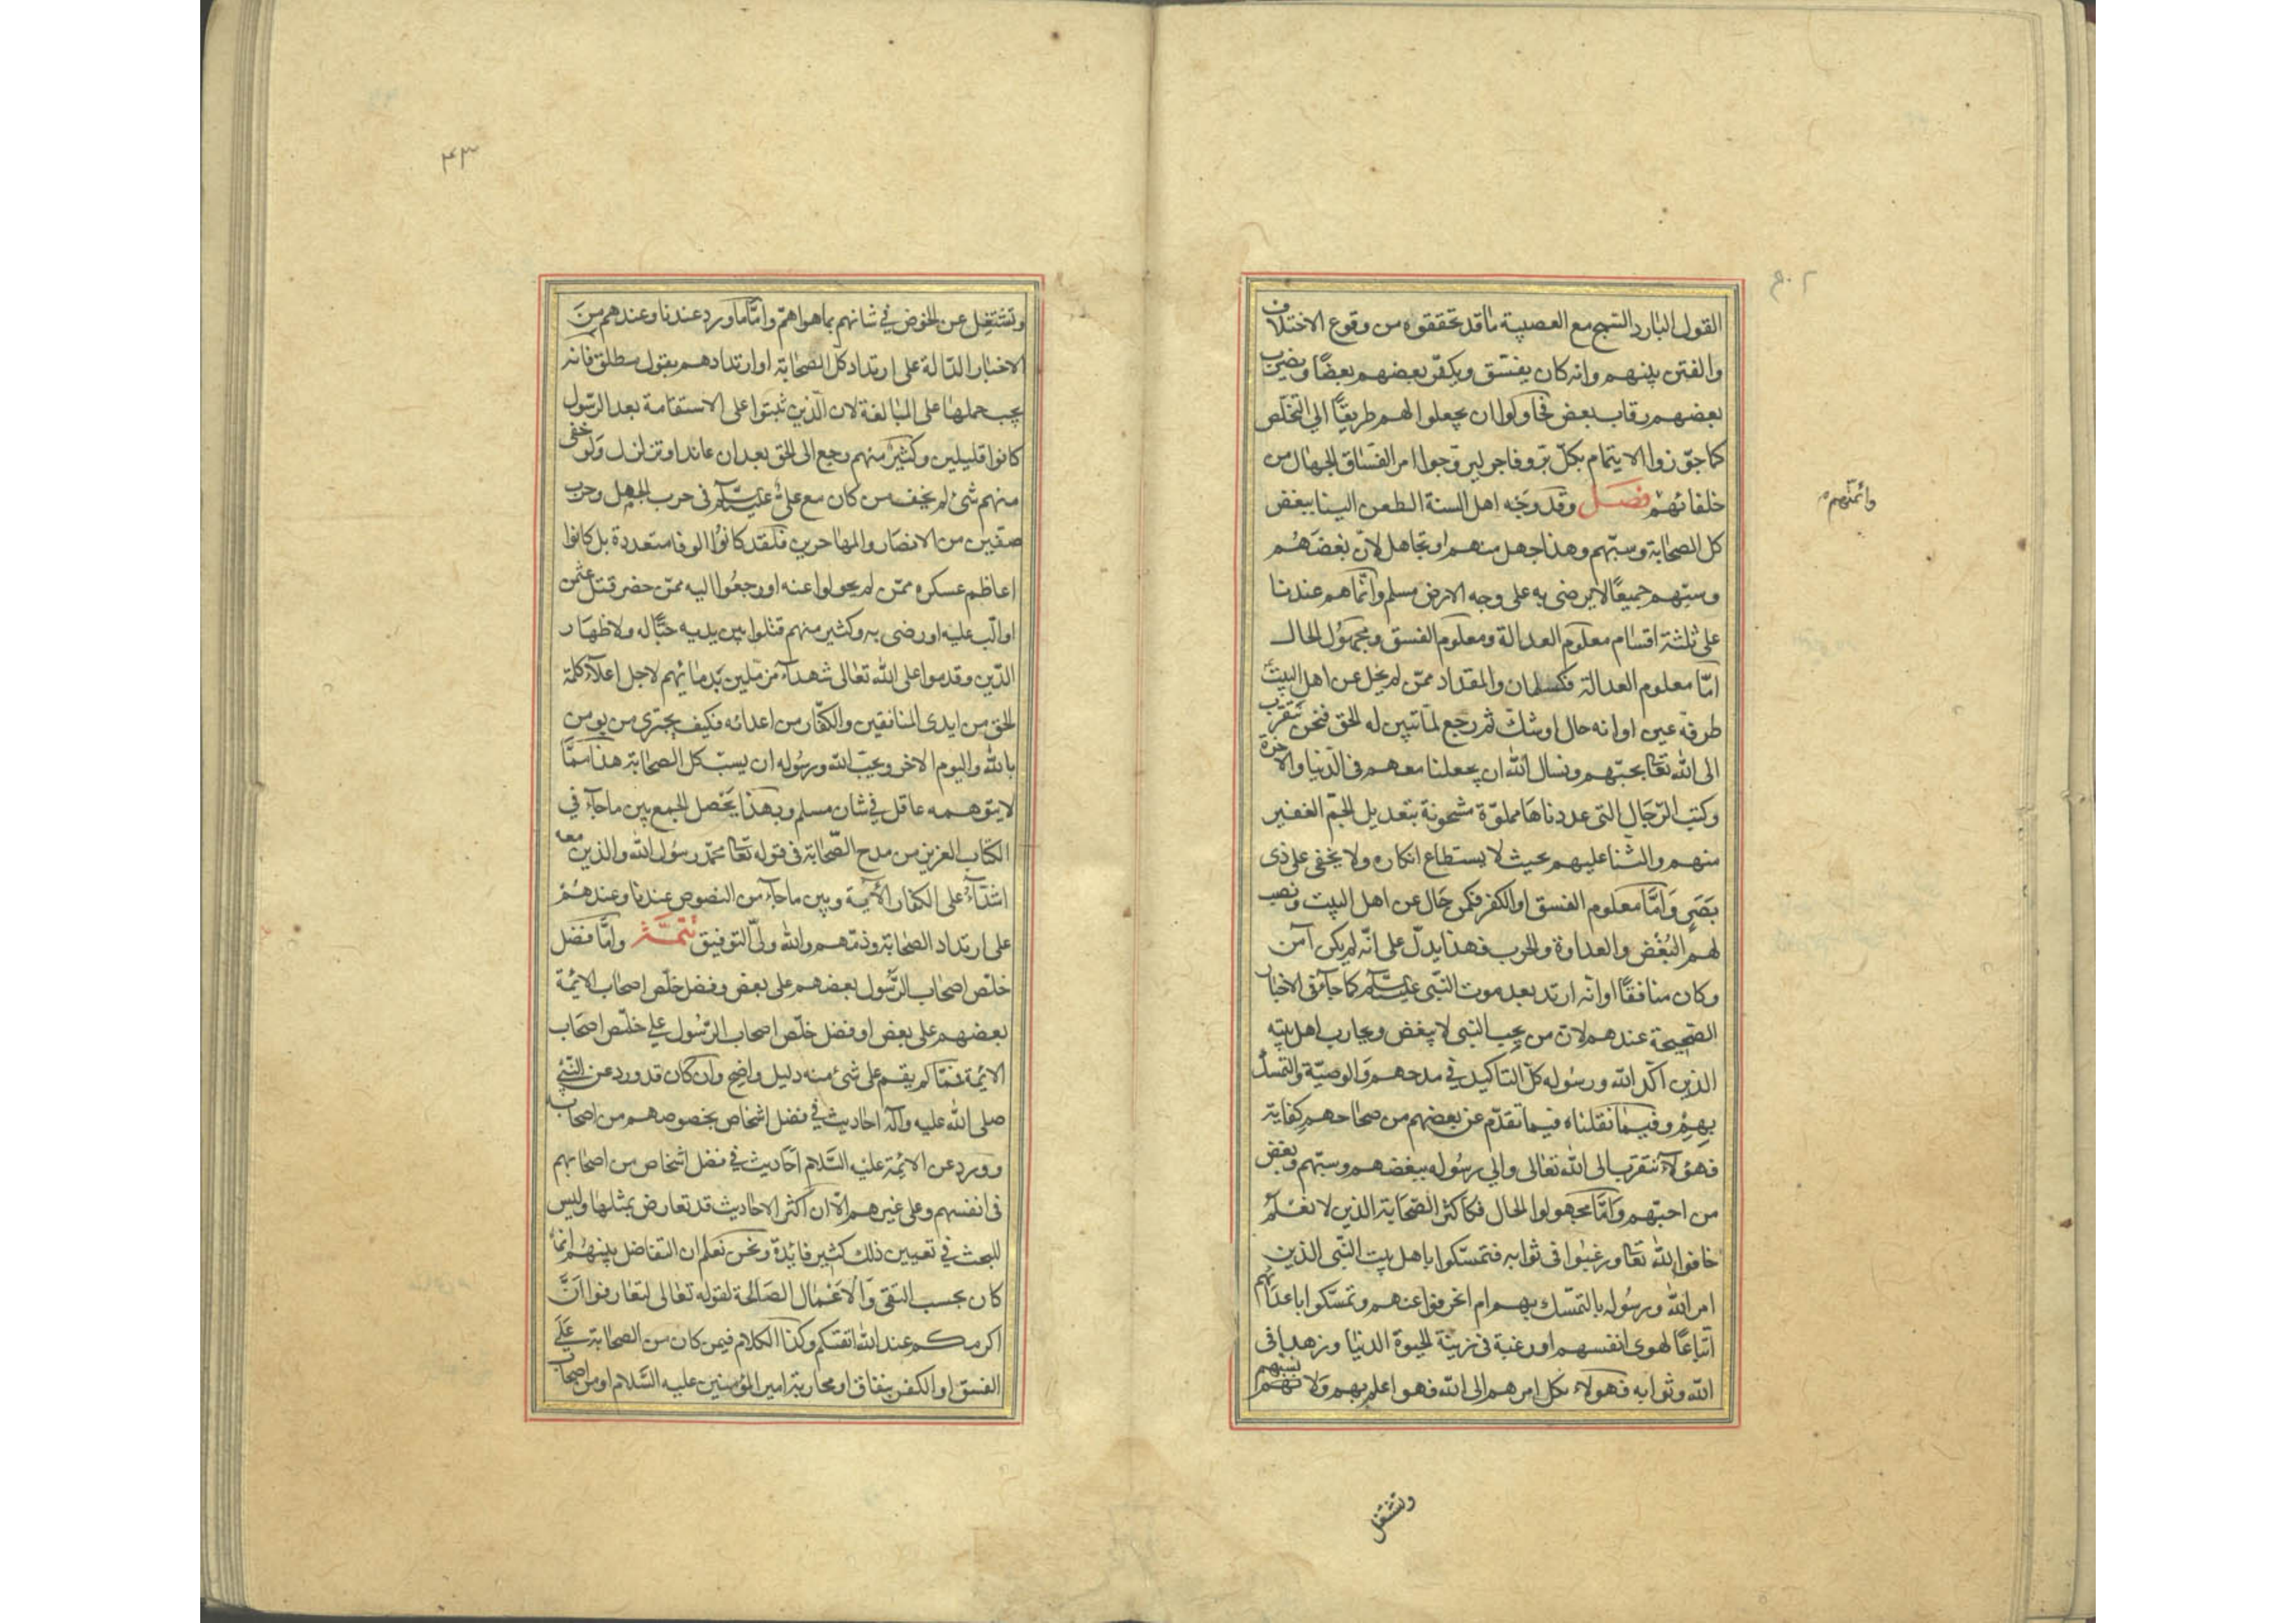 القول البارد السمج مع العصبية ما قد تحققوه من وقوع الاختلاف
والفتن بينهم وانه كان يفسق ويكفّر بعضهم بعضًا ويضرب
بعضهم رقاب بعض فحاولوا ان يجعلوا لهم طريقًا الى التخلص
كما جوّزوا الايتمام بكلّ برّ وفاجر ليروّجوا امر الفسّاق الجهال من
خلفائهم فصل وقد وجّه اهل السنة الطعن الينا ببغض
وائمتهم
كل الصحابة وسبّهم وهذا جهل منهم او تجاهل لانّ بغضهم
وسبّهم جميعًا لا يرضى به على وجه الارض مسلم وانّما هم عندنا
على ثلثة اقسام معلوم العدالة ومعلوم الفسق ومجهول الحال
امّا معلوم العدالة فكسلمان والمقداد ممّن لم يحل عن اهل البيت
طرفة عين او انه حال او شك ثم رجع لمّا تبين له الحق فنحن نتقرب
الى الله تعا بحبّهم ونسال الله ان يجعلنا معهم فى الدّنيا والاخرة
وكتب الرّجال التى عددناها مملوّة مشحونة بتعديل الجمّ الغفير
منهم والثنا عليهم بحيث لا يستطاع انكاره ولا يخفى على ذى
بصر وامّا معلوم الفسق او الكفر فكمن حال عن اهل البيت ونصب
لهم البغض والعداوة والحرب فهذا يدلّ على انّه لم يكن آمن
وكان منافقًا او انّه ارتد بعد موت النّبى عليه السلام كما جآء فى الاخبار
الصّحيحة عندهم لانّ من يحب النبى لا يبغض ويحارب اهل بيته
الذين اكّد الله ورسوله كلّ التاكيد فى مدحهم والوصيّة والتمسك
بهم وفيما نقلناه فيما تقدّم عن بعضهم من صحاحهم كفاية
فهؤلاء نتقرب الى الله تعالى والى رسوله ببغضهم وسبّهم وبغض
من احبّهم وامّا مجهولوا الحال فكاكثر الصّحابة الذين لا نعلم
خافوا الله تعا ورغبوا فى ثوابه فتمسّكوا باهل بيت النّبى الذين
امر الله ورسوله بالتمسّك بهم ام انحرفوا عنهم وتمسّكوا باعدائهم
اتباعًا لهوى انفسهم او رغبة فى زينة الحيوة الدنيا وزهدا فى
الله وثوابه فهولاء نكل امرهم الى الله فهو اعلم بهم ولا نسبهم
ونشتغل
٤٣
ونشتغل عن الخوض فى شانهم بما هو اهمّ وامّا ما ورد عندنا وعندهم من
الاخبار الدّالة على ارتداد كل الصحابة او ارتدادهم بقول مطلق فانه
يجب حملها على المبالغة لان الّذين ثبتوا على الاستقامة بعد الرّسول
كانوا قليلين وكثير منهم رجع الى الحق بعد ان عاند او تزلزل ولو خفى
منهم شئ لم يخف من كان مع علىّ عليه السلام فى حرب الجمل وحرب
صفّين من الانصار والمهاجرين فلقد كانوا الوفا متعددة بل كانوا
اعاظم عسكره ممّن لم يحولوا عنه او رجعوا اليه ممّن حضر قتل عثمن
او الّب عليه او رضى به وكثير منهم قتلوا بين يديه حبًّا له ولاظهار
الدّين وقدموا على الله تعالى شهدآء مزملين بدمائهم لاجل اعلاء كلمة
الحق من ايدى المنافقين والكفّار من اعدائه فكيف يجترى من يومن
بالله واليوم الاخر ويحبّ الله ورسوله ان يسبّ كل الصحابة هذا ممّا
لا يتوهمه عاقل فى شان مسلم وبهذا يحصل الجمع بين ما جآء فى
الكتاب العزيز من مدح الصّحابة فى قوله تعا محمّد رسول الله والذين معه
اشدّاء على الكفار الآية وبين ما جآء من النصوص عندنا وعندهم
على ارتداد الصحابة وذمّهم والله ولىّ التوفيق تتمة وامّا فضل
خلّص اصحاب الرّسول بعضهم على بعض وفضل خلّص اصحاب الائمة
بعضهم على بعض او فضل خلّص اصحاب الرّسول على خلّص اصحاب
الائمة فمّما لم يقم على شئ منه دليل واضح وان كان قد ورد عن النّبى
صلى الله عليه وآله احاديث فى فضل اشخاص بخصوصهم من اصحابه
وورد عن الائمة عليه السّلام احاديث فى فضل اشخاص من اصحابهم
فى انفسهم وعلى غيرهم الّا ان اكثر الاحاديث قد تعارض بمثلها وليس
للبحث فى تعيين ذلك كثير فائدة ونحن نعلم ان التفاضل بينهم انّما
كان بحسب التقى والاعمال الصّالحة لقوله تعالى لتعارفوا انّ
اكرمكم عند الله اتقيكم وكذا الكلام فيمن كان من الصحابة على
الفسق او الكفر بنفاق او محاربة امير المؤمنين عليه السّلام او من اصحاب